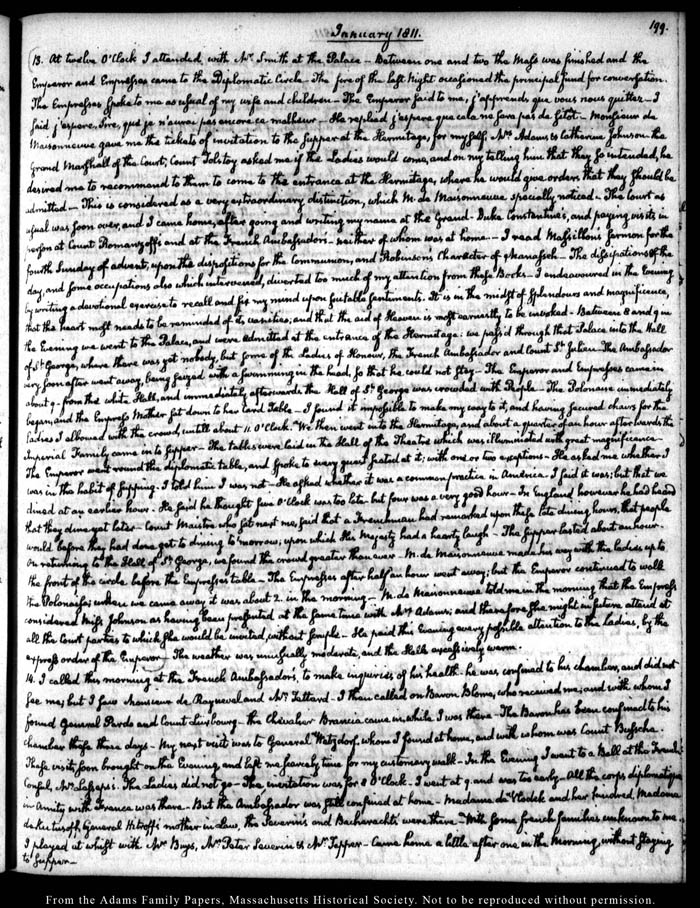 January 1811.
199.
13. At twelve O'Clock I attended, with Mr Smith at the Palace — Between one and two the Mass was finished and the
Emperor and Empresses came to the Diplomatic Circle — The fire of the last Night occasioned the principal fund for conversation.
The Empresses spoke to me as usual of my wife and children — The Emperor said to me, j'apprends que vous nous quittez — I
said j'espere, Sire, que je n'aurai pas encore ce malheur — He replied j'espere que cela ne sera pas de sitot — Monsieur de
Maisonneuve gave me the tickets of invitation to the Supper at the Hermitage, for myself, Mrs Adams & Catherine Johnson — the
Grand Marshall of the Court, Count Tolstoy asked me if the Ladies would come, and on my telling him that they so intended, he
desired me to recommend to them to come to the entrance at the Hermitage, where he would give orders that they should be
admitted — This is considered as a very extraordinary distinction, which M. de Maisonneuve specially noticed — The Court as
usual was soon over, and I came home, after going and writing my name at the Grand-Duke Constantine's, and paying visits in
person at Count Romanzoff's and at the French Ambassador's — neither of whom was at home — I read Massillon's sermon for the
fourth Sunday of advent, upon the dispositions for the Communion, and Robinson's Character of Manasseh — The dissipations of the
day, and some occupations also which intervened, diverted too much of my attention from these Books — I endeavoured in the Evening
by writing a devotional exercise to recall and fix my mind upon suitable sentiments. It is in the midst of splendours and magnificence,
that the heart most needs to be reminded of its vanities, and that the aid of Heaven is most earnestly to be invoked — Between 8 and 9 in
the Evening we went to the Palace, and were admitted at the entrance of the Hermitage: we pass'd through that Palace into the Hall
of St. George, where there was yet nobody, but some of the Ladies of Honour, the French Ambassador and Count St. Julien — The Ambassador
very soon after went away, being seized with a swimming in the head, so that he could not stay — The Emperor and Empresses came in
about 9 — from the white Hall, and immediately afterwards the Hall of St. George was crowded with People — The Polonaise immediately
began, and the Empress Mother sat down to her Card Table — I found it impossible to make my way to it, and having secured chairs for the
Ladies I elbowed with the crowd, untill about 11. O'Clock. We then went into the Hermitage, and about a quarter of an hour afterwards the
Imperial Family came in to Supper — The tables were laid in the Hall of the Theatre which was illuminated with great magnificence —
The Emperor went round the diplomatic table, and spoke to every guest seated at it; with one or two exceptions — He asked me whether I
was in the habit of supping. I told him I was not — He asked whether it was a common practice in America. I said it was; but that we
dined at an earlier hour — He said he thought five O'Clock was too late — but four was a very good hour — In England however he had heard
that they dine yet later — Count Maistre who sat next me, said that a Frenchman had remarked upon these late dining hours, that people
would before they had done get to dining to'morrow; upon which His Majesty had a hearty laugh — The Supper lasted about an hour.
On returning to the Hall of St. George, we found the crowd greater than ever — M. de Maisonneuve made his way with the ladies up to
the front of the circle before the Empresses table — The Empresses after half an hour went away; but the Emperor continued to walk
the Polonaises; when we came away it was about 2. in the morning — M. de Maisonneuve told me in the morning that the Empress
considered Miss Johnson as having been presented at the same time with Mrs Adams; and therefore she might in future attend at
all the Court parties to which she would be invited, without scruple — He paid this Evening every possible attention to the Ladies, by the
express order of the Emperor — The weather was unusually moderate, and the Halls excessively warm.
14. I called this morning at the French Ambassador's, to make inquiries of his health. he was confined to his chamber, and did not
see me; but I saw Monsieur de Rayneval and Mr. — I then called on Baron Blome, who received me; and with whom I
found General Pardo and Count Luxbourg — the Chevalier Brancia came in, while I was there — The Baron has been confined to his
chamber these three days — My next visit was to General Watzdorf, whom I found at home, and with whom was Count Bussche.
These visits soon brought on the Evening, and left me scarcely time for my customary walk — In the Evening I went to a Ball at the French
Consul, Mr Lesseps's. The Ladies did not go — The invitation was for 8 O'Clock — I went at 9. and was too early — All the corps diplomatique
in Amity with France was there — But the Ambassador was still confined at home — Madame de Vlodek and her husband, Madame
de Kutusoff, General Hitroff's mother in Law, the Severins and Bacharachts were there — With some french families unknown to me
I played at whist with Mrs Buys, Mr Peter Severin & Mr Tepper — Came home a little after one in the Morning, without staying
to Supper —
From the Adams Family Papers, Massachusetts Historical Society. Not to be reproduced without permission.